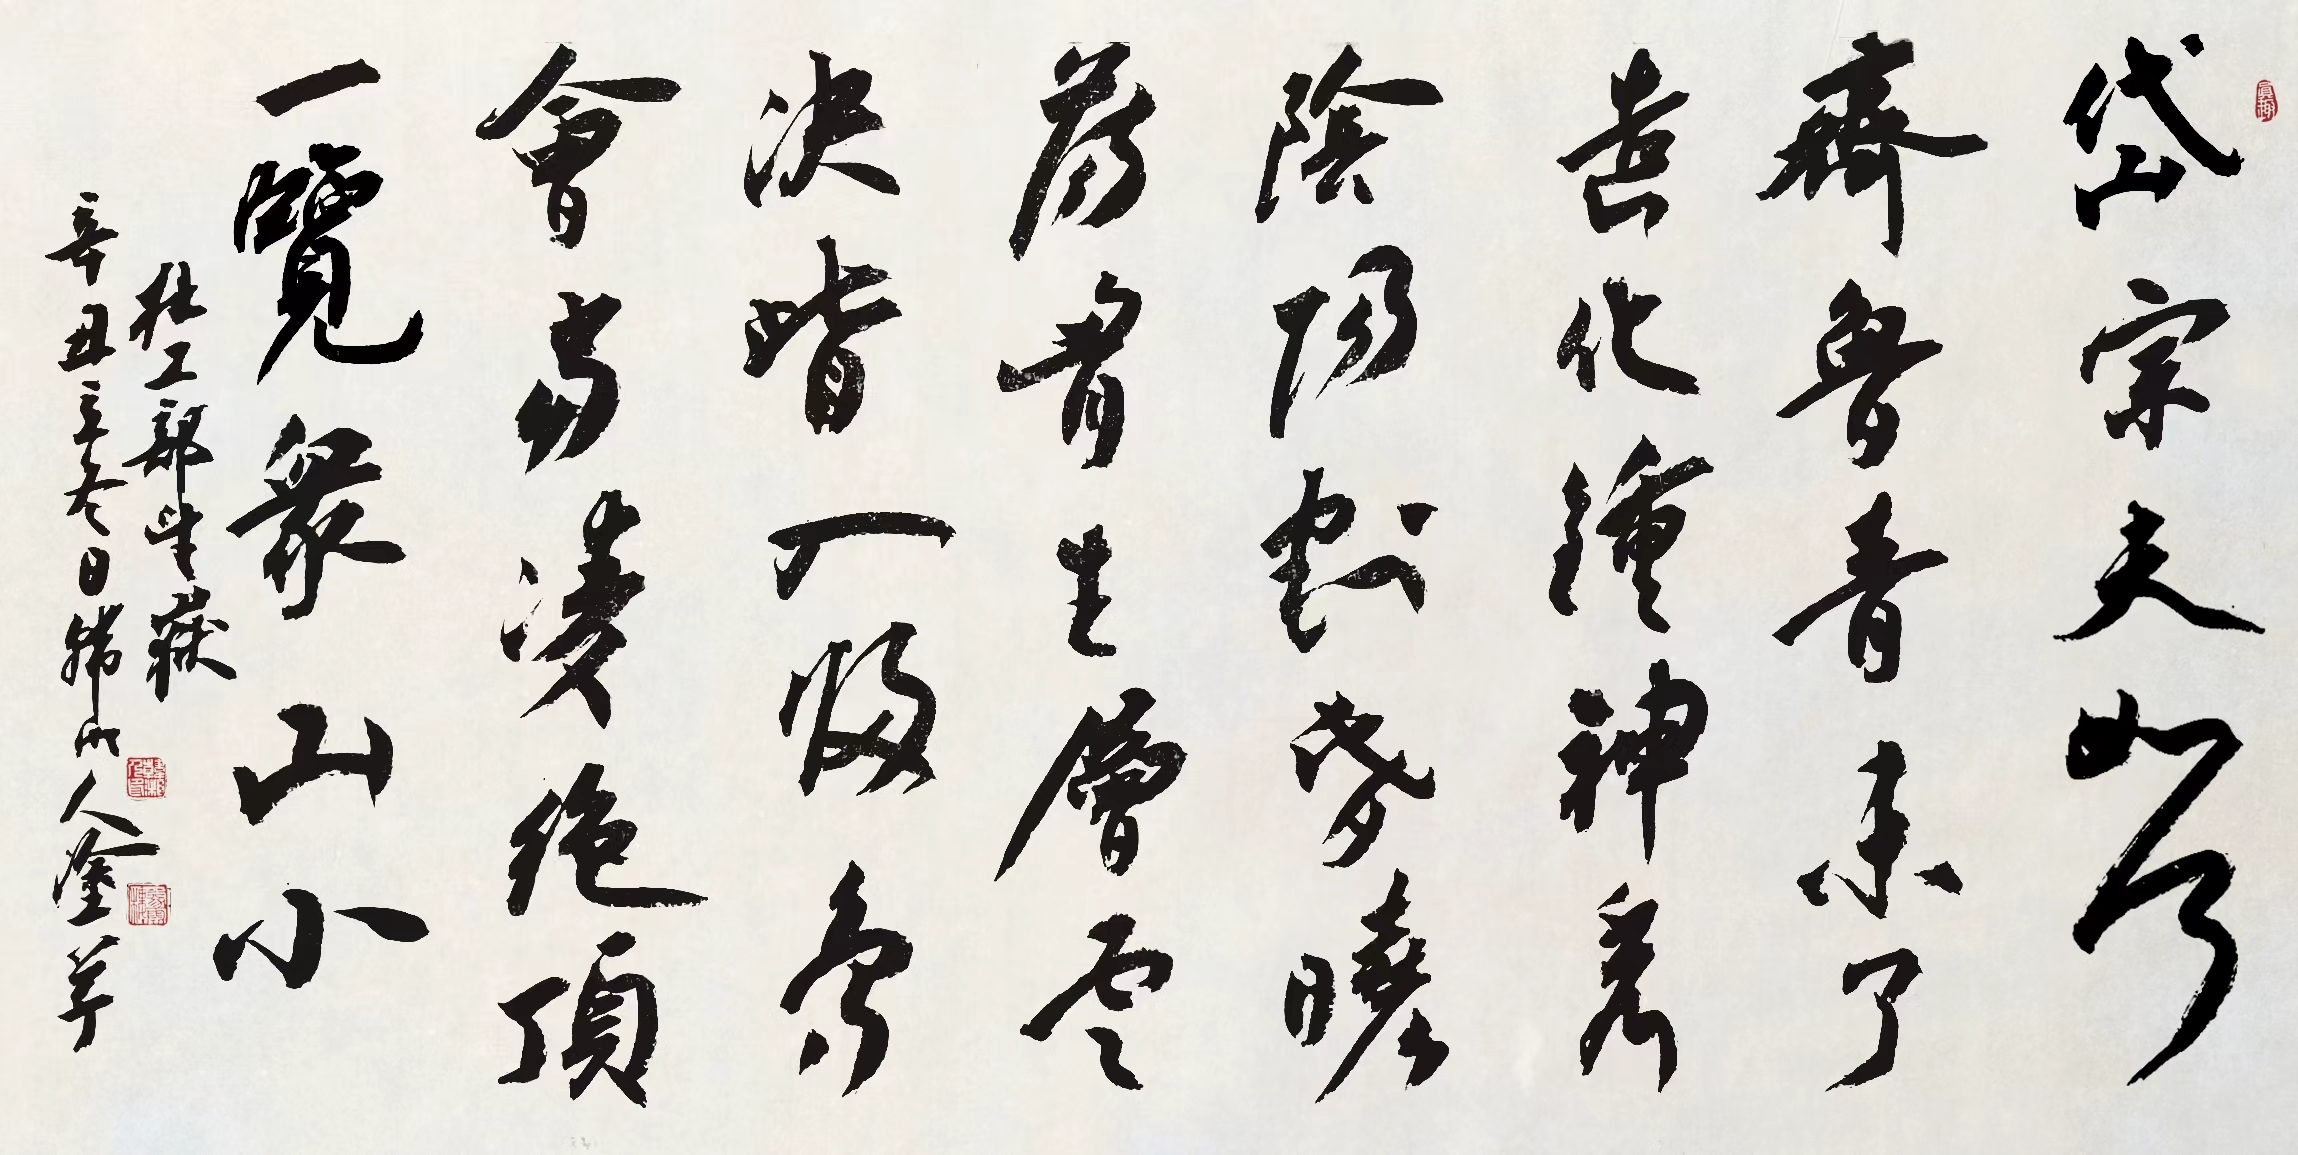 岱宗夫如何
齊魯青未了
造化鍾神秀
陰陽割昏曉
蕩胷生層雲
决眥入歸鳥
會當凌絕頂
一覽衆山小
杜工部望嶽
辛丑立冬日人草